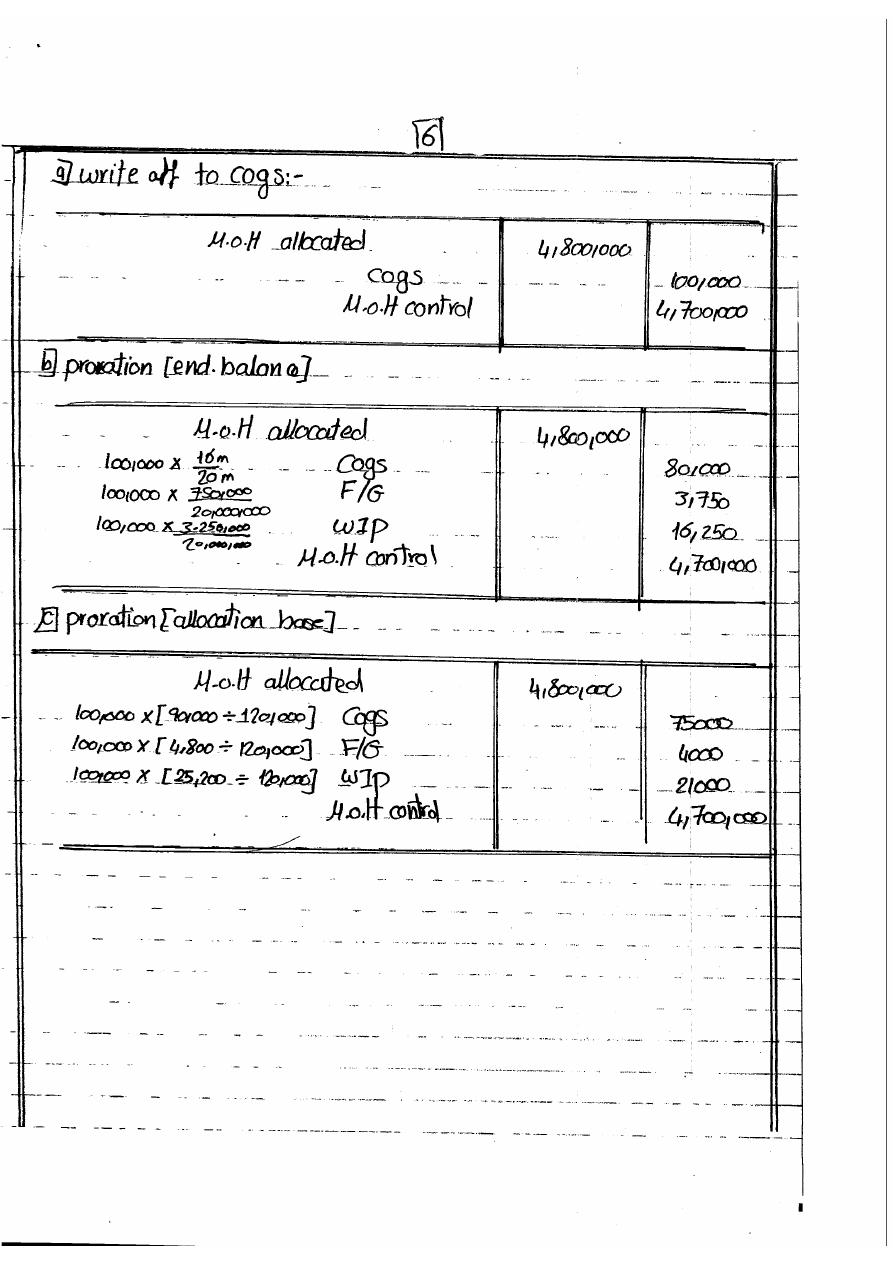 6
a] write off to cogs:-
M.O.H allocated 4,800,000
cogs 100,000
M.O.H control 4,700,000
b] proration [end. balance]
M.O.H allocated 4,800,000
100,000 X 16m / 20m Cogs 80,000
100,000 X 750,000 / 20,000,000 F/G 3,750
100,000 X 3.250,000 / 20,000,000 WIP 16,250
M.O.H control 4,700,000
c] proration [allocation base]
M.O.H allocated 4,800,000
100,000 X [90,000 ÷ 120,000] Cogs 75000
100,000 X [4,800 ÷ 120,000] F/G 4000
100,000 X [25,200 ÷ 120,000] WIP 21000
M.O.H control 4,700,000